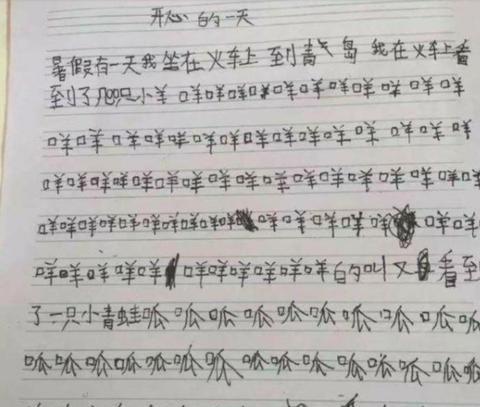 开心的一天
暑假有一天我坐在火车上到青岛我在火车上看
到了几只小羊咩咩咩咩咩咩咩咩咩咩咩咩
咩咩咩咩咩咩咩咩咩咩咩咩咩咩咩
咩咩咩咩咩咩咩咩咩咩咩咩咩咩咩咩咩咩
咩咩咩咩咩咩咩咩咩咩咩咩咩咩咩咩
咩咩咩咩咩咩咩咩咩咩咩的叫又看到
了一只小青蛙呱呱呱呱呱呱呱呱呱呱
呱呱呱呱呱呱呱呱呱呱呱呱呱呱